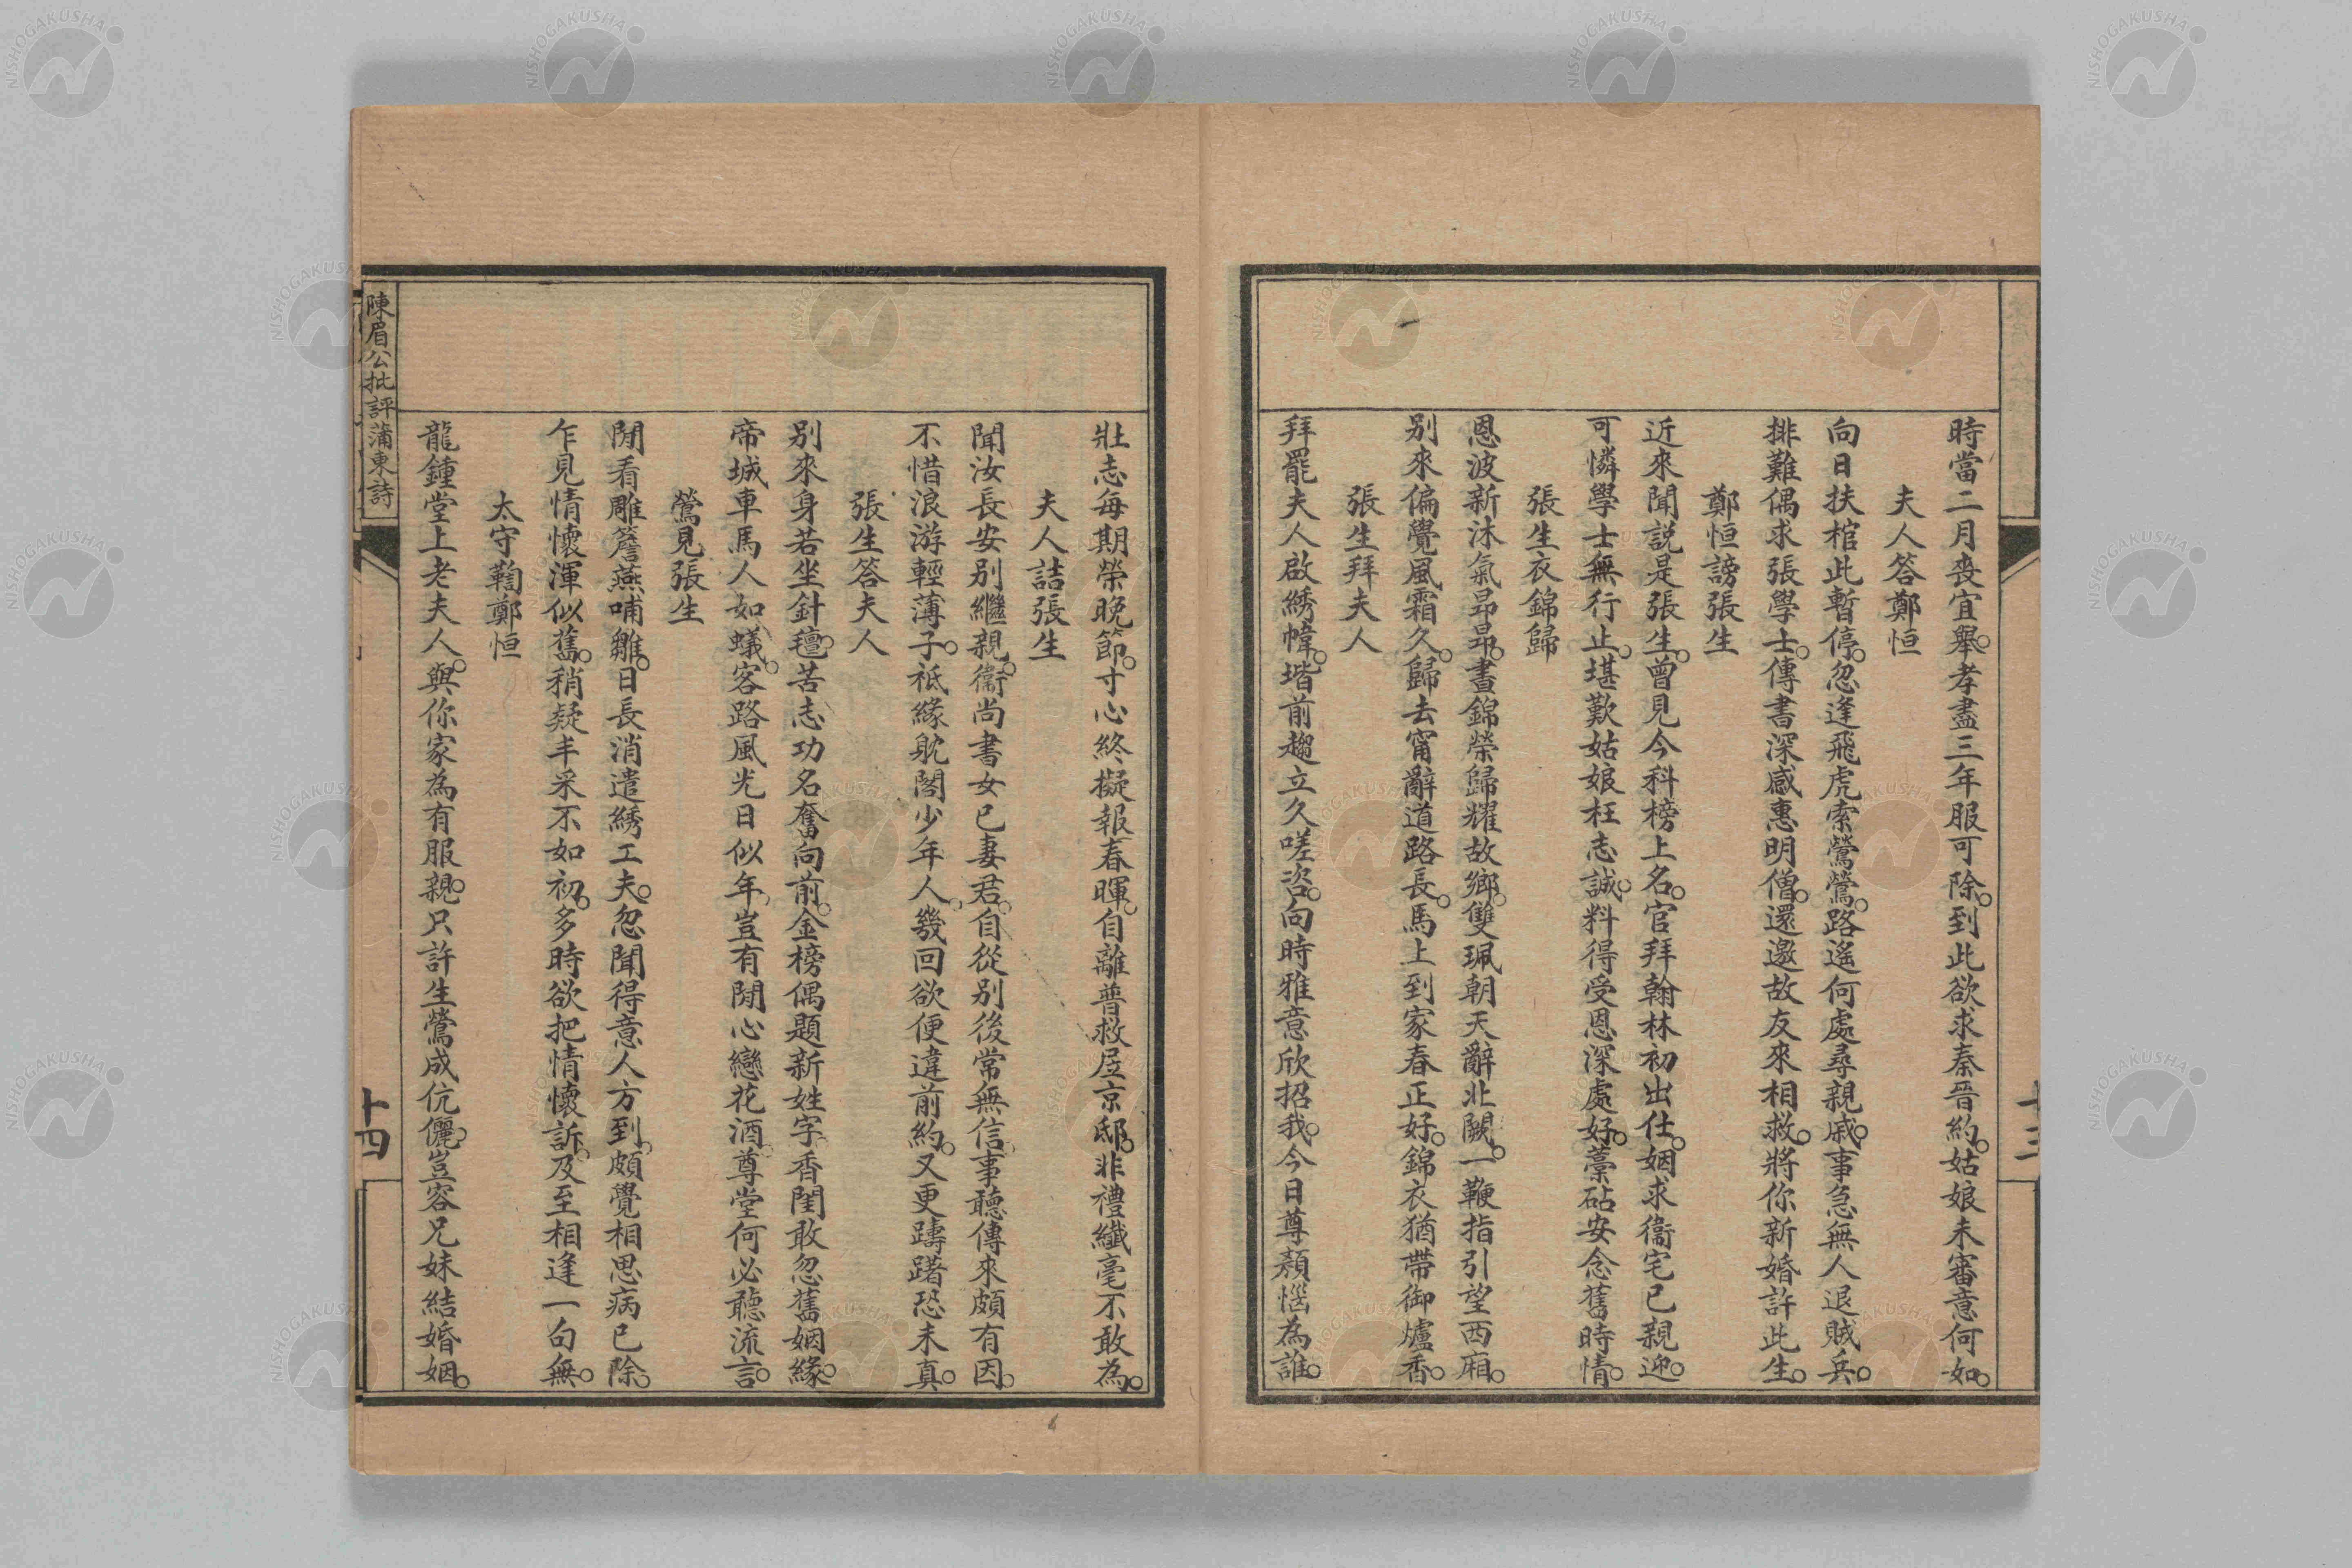 時當二月喪宜舉。孝盡三年服可除。到此欲求秦晉約。姑娘未審意何如。
夫人答鄭恒
向日扶棺此暫停。忽逢飛虎索鶯鶯。路遙何處尋親戚。事急無人退賊兵。
排難偶求張學士。傳書深感惠明僧。還邀故友來相救。將你新婚許此生。
鄭恒謗張生
近來聞説是張生。曾見今科榜上名。官拜翰林初出仕。姻求衞宅已親迎。
可憐學士無行止。堪歎姑娘枉志誠。料得受恩深處好。藁砧安念舊時情。
張生衣錦歸
恩波新沐氣昻昻。晝錦榮歸耀故鄉。雙珮朝天辭北闕。一鞭指引望西廂。
別來偏覺風霜久。歸去甯辭道路長。馬上到家春正好。錦衣猶帶御爐香。
張生拜夫人
拜罷夫人啟綉幃。堦前趨立久嗟咨。向時雅意欣招我。今日尊顏惱為誰。
壯志每期榮晚節。寸心終擬報春暉。自離普救居京邸。非禮纖毫不敢為。
夫人詰張生
聞汝長安別繼親。衞尚書女已妻君。自從別後常無信。事聽傳來頗有因。
不惜浪游輕薄子。祗緣躭閣少年人。幾回欲便違前約。又更躊躇恐未真。
張生答夫人
別來身若坐針氊。苦志功名奮向前。金榜偶題新姓字。香閨敢忽舊姻緣。
帝城車馬人如蟻。客路風光日似年。豈有閒心戀花酒。尊堂何必聽流言。
鶯見張生
閒看雕簷燕哺雛。日長消遣綉工夫。忽聞得意人方到。頗覺相思病已除。
乍見情懷渾似舊。稍疑丰采不如初。多時欲把情懷訴。及至相逢一句無。
太守鞫鄭恒
龍鍾堂上老夫人。與你家為有服親。只許生鶯成伉儷。豈容兄妹結婚姻。
陳眉公批評蒲東詩
十四